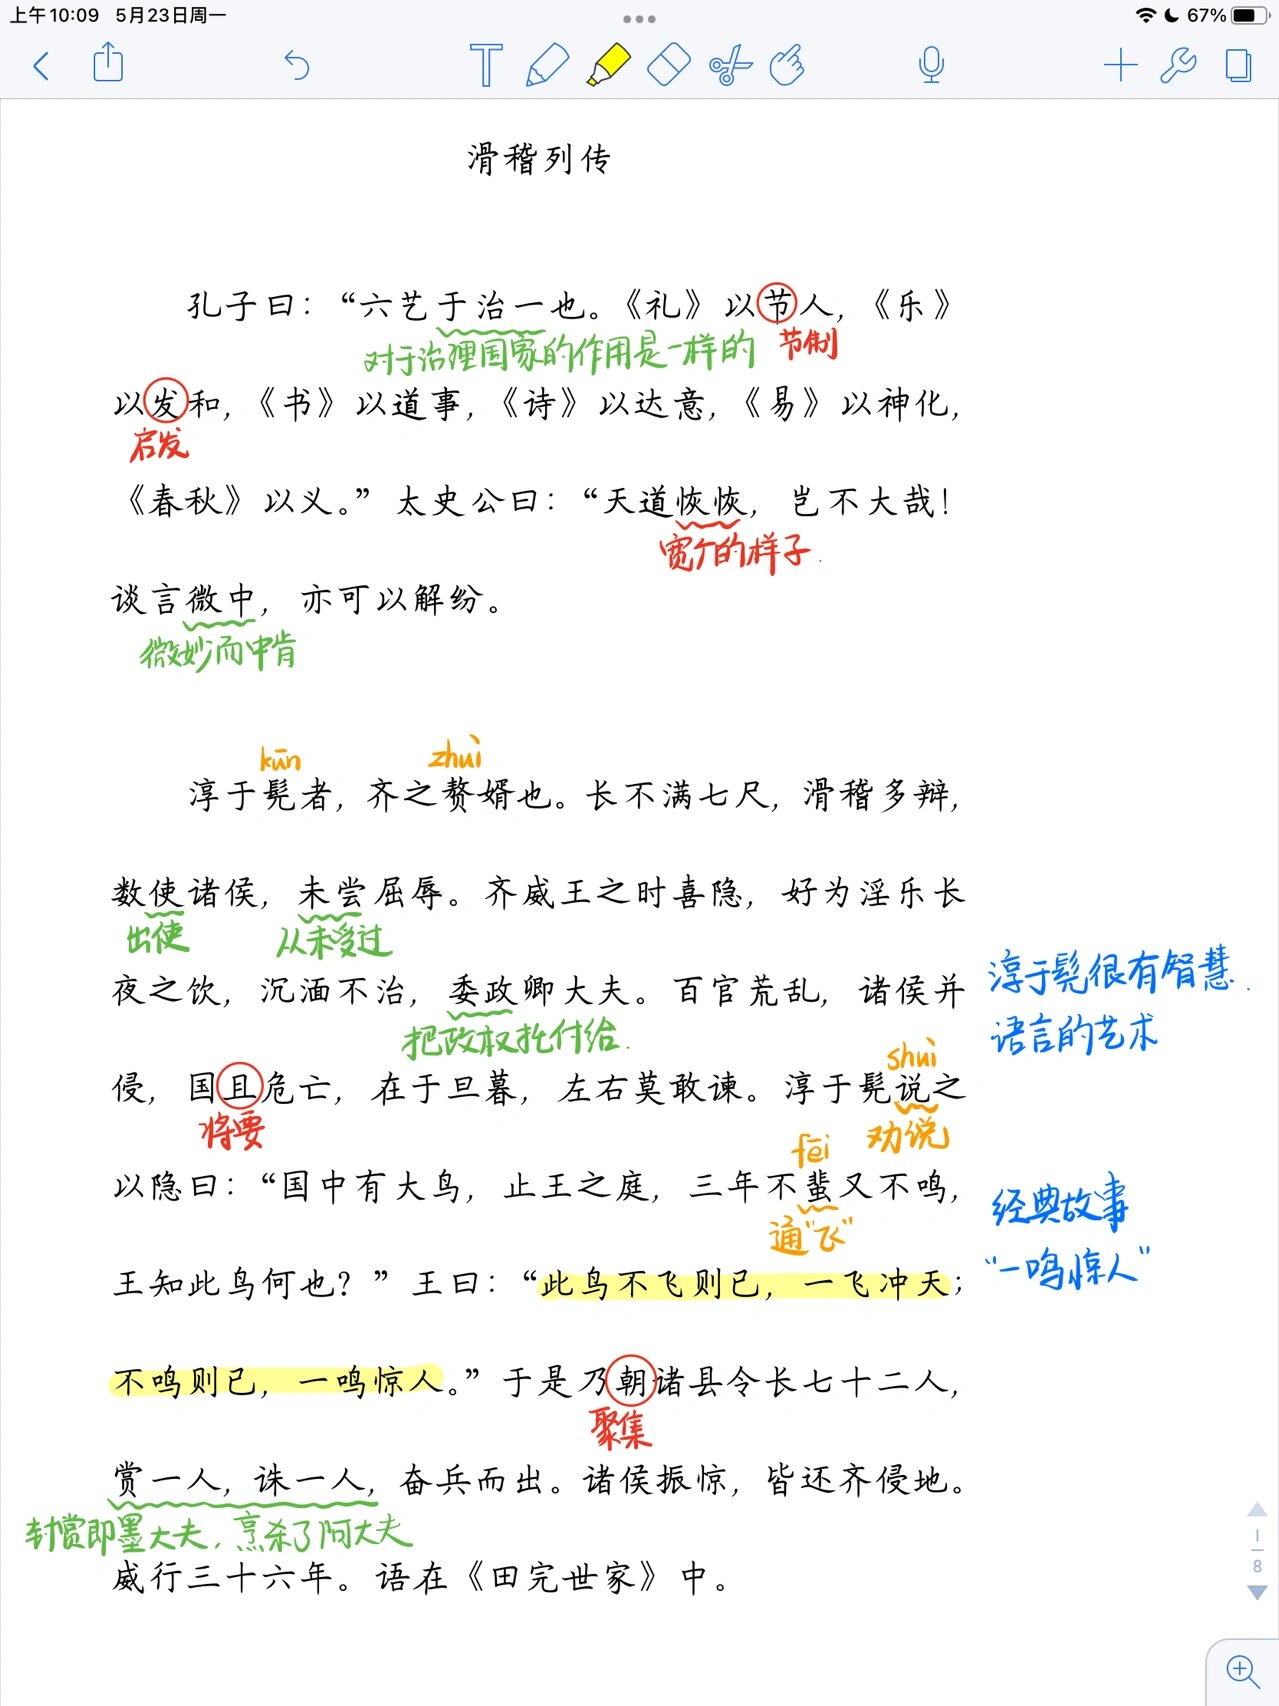 上午10:09 5月23日周一
67%
滑稽列传
孔子曰：“六艺于治一也。《礼》以节人，《乐》
对于治理国家的作用是一样的 节制
以发和，《书》以道事，《诗》以达意，《易》以神化，
启发
《春秋》以义。”太史公曰：“天道恢恢，岂不大哉！
宽广的样子
谈言微中，亦可以解纷。
微妙而中肯
kūn zhuì
淳于髡者，齐之赘婿也。长不满七尺，滑稽多辩，
数使诸侯，未尝屈辱。齐威王之时喜隐，好为淫乐长
出使 从未受过
夜之饮，沉湎不治，委政卿大夫。百官荒乱，诸侯并
淳于髡很有智慧.
把政权托付给.
语言的艺术
shuì
侵，国且危亡，在于旦暮，左右莫敢谏。淳于髡说之
将要 劝说
fēi
以隐曰：“国中有大鸟，止王之庭，三年不蜚又不鸣，
经典故事
通“飞”
“一鸣惊人”
王知此鸟何也？”王曰：“此鸟不飞则已，一飞冲天；
不鸣则已，一鸣惊人。”于是乃朝诸县令长七十二人，
聚集
赏一人，诛一人，奋兵而出。诸侯振惊，皆还齐侵地。
封赏即墨大夫，烹杀了阿大夫
威行三十六年。语在《田完世家》中。
1
8